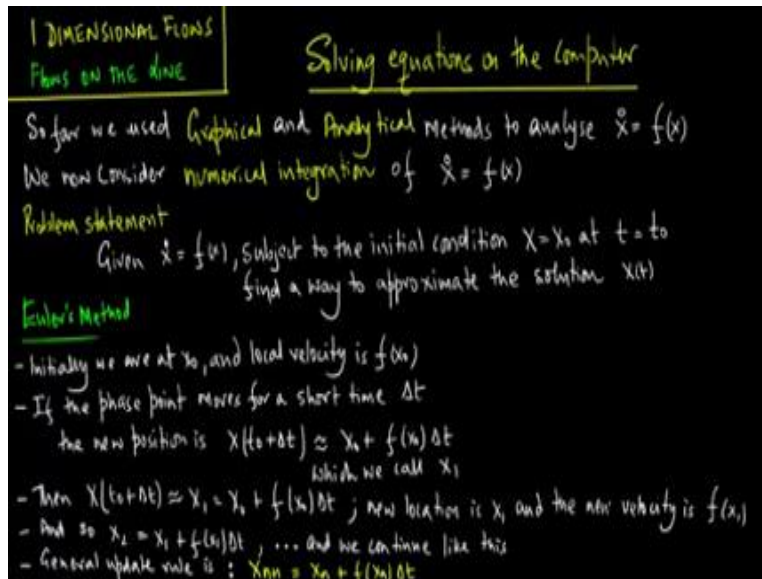 1 DIMENSIONAL FLOWS
FLOWS ON THE LINE
Solving equations on the Computer
So far we used Graphical and Analytical methods to analyse ẋ = f(x)
We now consider numerical integration of ẋ = f(x)
Problem statement
Given ẋ = f(x), subject to the initial condition X = X₀ at t = t₀
find a way to approximate the solution X(t)
Euler's Method
- Initially we are at x₀, and local velocity is f(x₀)
- If the phase point moves for a short time Δt
the new position is X(t₀+Δt) ≈ X₀ + f(x₀) Δt
which we call X₁
- Then X(t₀+Δt) ≈ X₁ = X₀ + f(x₀)Δt ; new location is X₁ and the new velocity is f(x₁)
- And so X₂ = X₁ + f(x₁)Δt , ... and we continue like this
- General update rule is : Xₙ₊₁ = Xₙ + f(xₙ)Δt